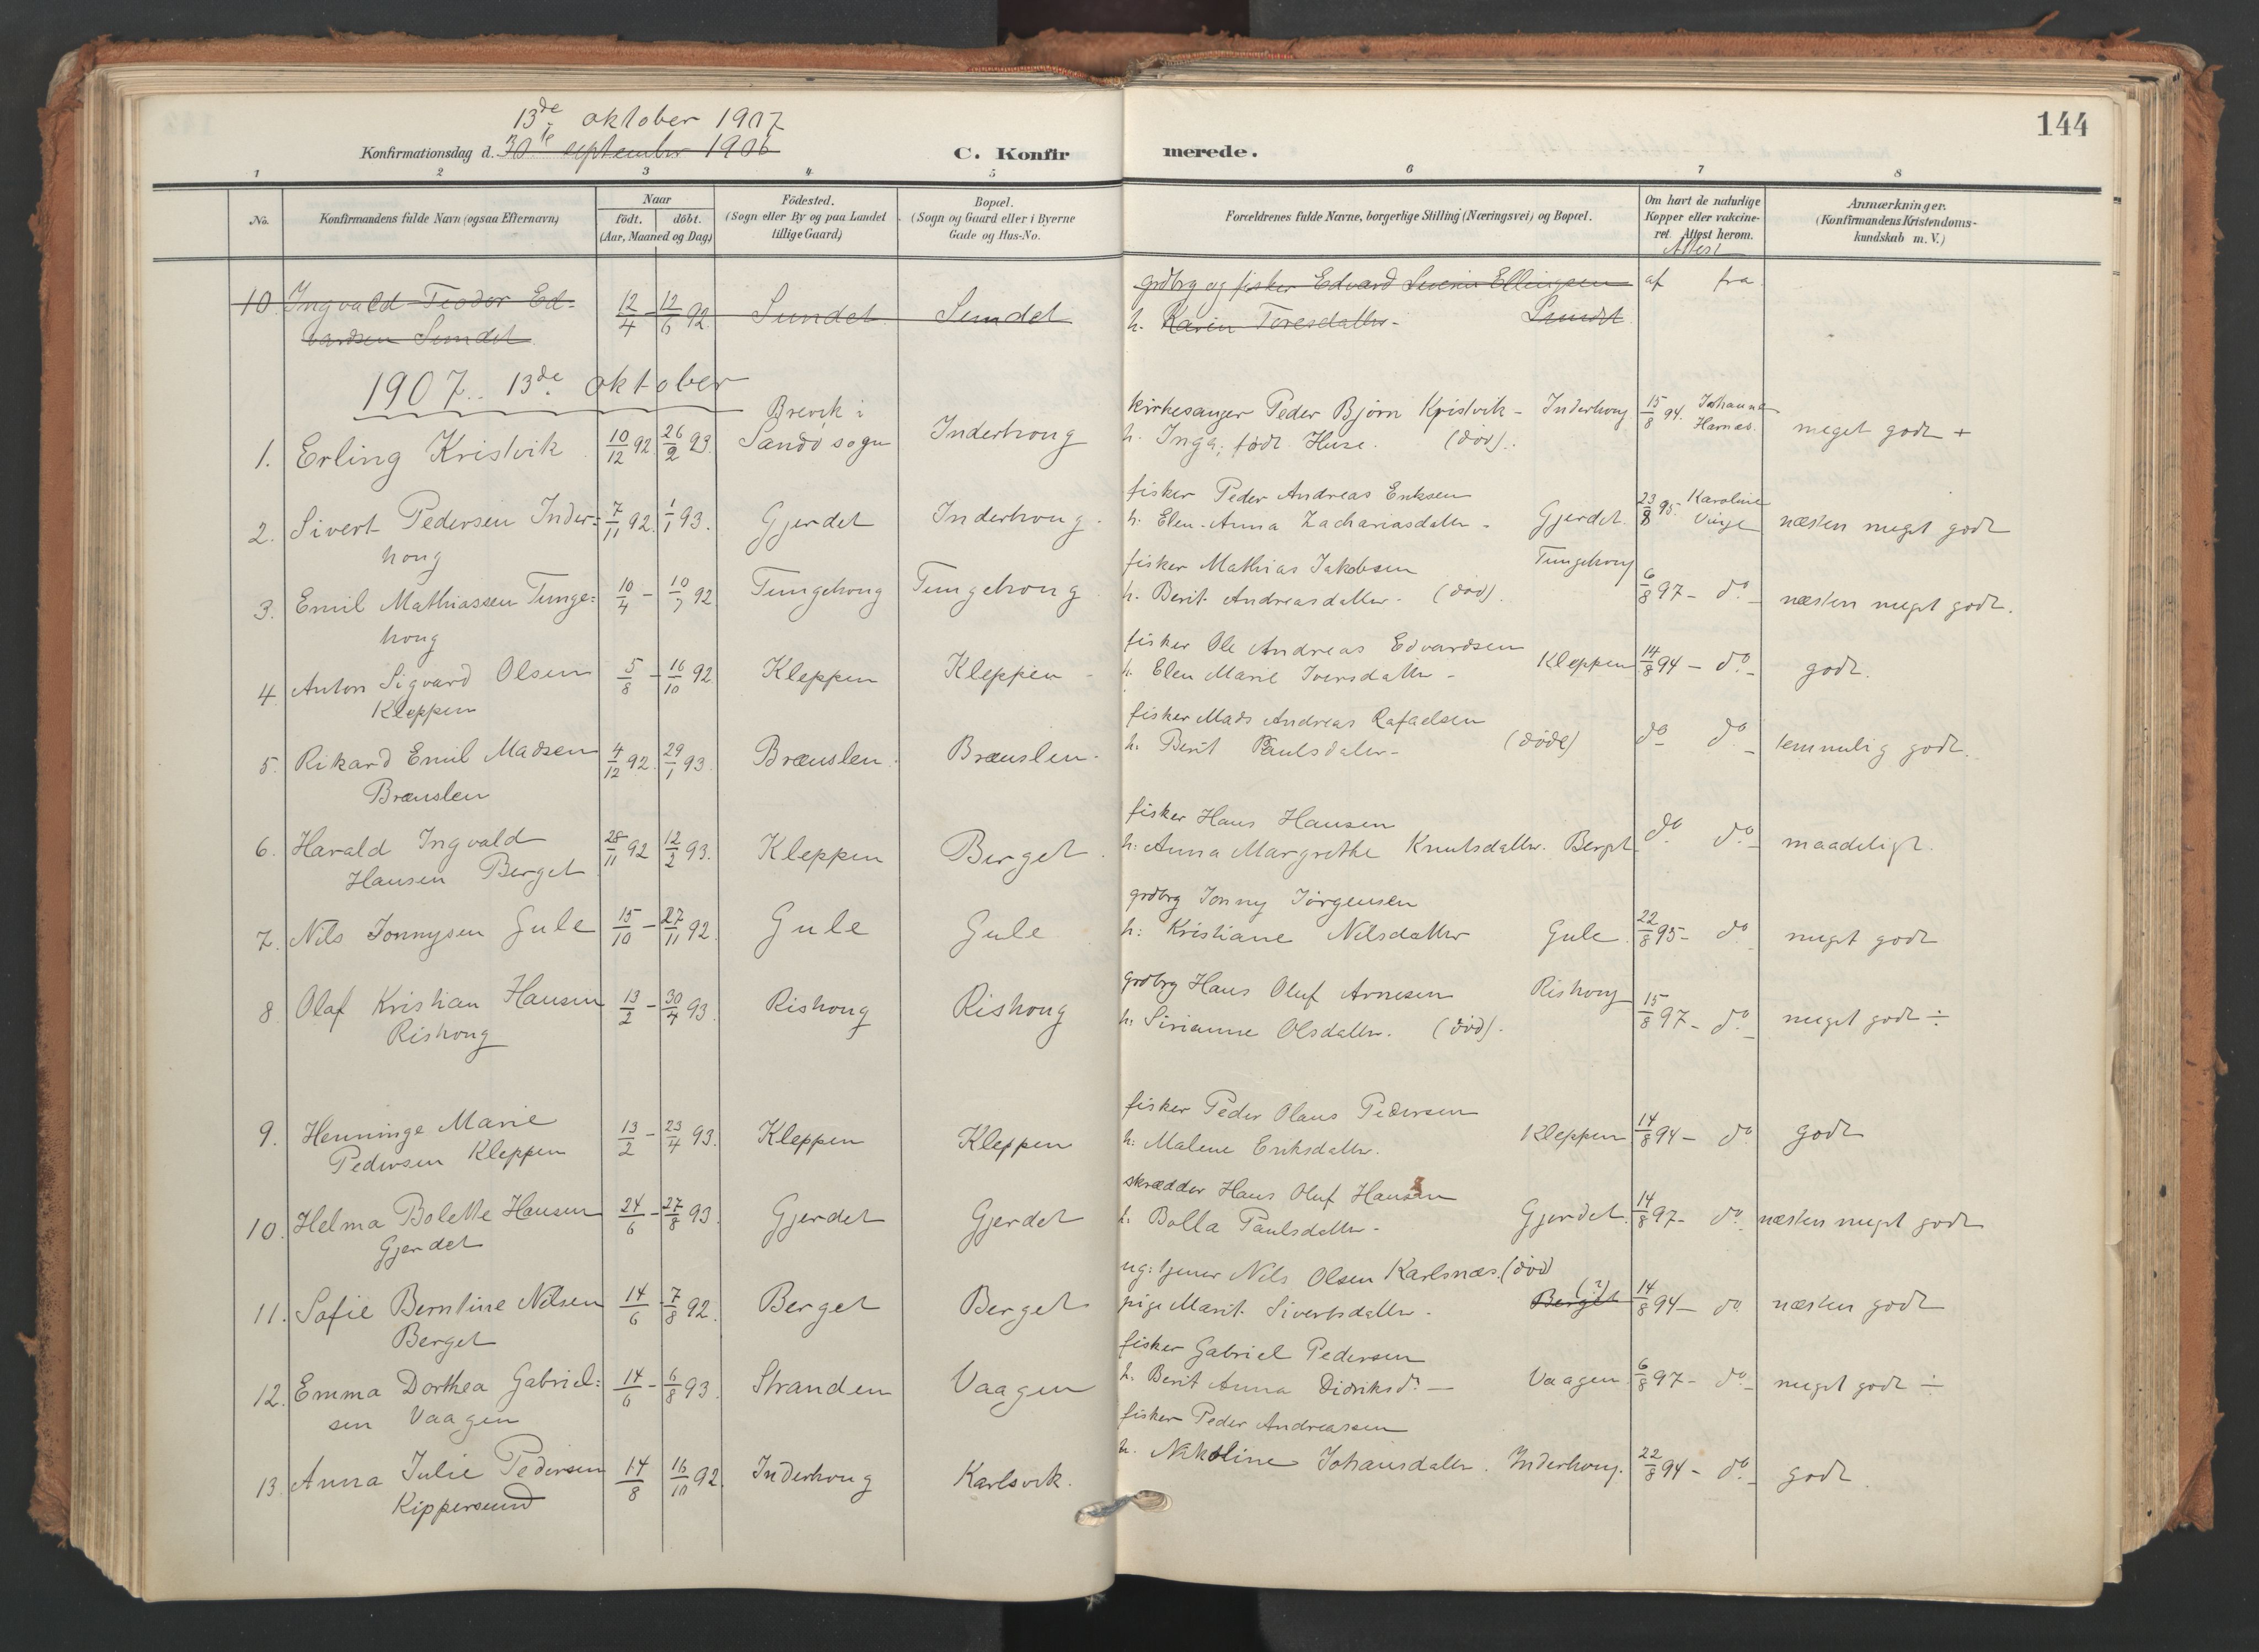 144
13de oktober 1907
Konfirmationsdag d. 30te september 1906
C. Konfirmerede.
1 2 3 4 5 6 7 8
No.
Konfirmandens fulde Navn (ogsaa Efternavn)
Naar
födt. döbt.
(Aar, Maaned og Dag)
Födested.
(Sogn eller By og paa Landet
tillige Gaard)
Bopæl.
(Sogn og Gaard eller i Byerne
Gade og Hus-No.
Forældrenes fulde Navne, borgerlige Stilling (Næringsvei) og Bopæl.
Om havt de naturlige
Kopper eller vakcine-
ret. Attest herom.
Attest
Anmærkninger.
(Konfirmandens Kristendoms-
kundskab m. V.)
10. Ingvald Teodor Ed- 12/4 - 12/6 92. Sundet Sundet grdbrg og fisker Edvard Severin Ellingsen af fra
vardsen Sundet h. Karin Toresdatter - Sundet
1907. 13de oktober
Brevik i kirkesanger Peder Bjørn Kristvik - Inderhoug 15/8 94. Johanna
1. Erling Kristvik 10/12 92 26/2 93. Sandø sogn Inderhoug h. Inga, født Huse. (død). Harnæs. meget godt +
fisker Peder Andreas Eriksen
2. Sivert Pedersen Inder= 7/11 92. 1/1 93. Gjerdet Inderhoug. h. Elen Anna Zachariasdatter - Gjerdet. 23/8 95. Karoline Vinje næsten meget godt
houg
fisker Mathias Jakobsen Tungehoug
3. Emil Mathiassen Tunge= 10/4 - 10/7 92 Tungehoug Tungehoug h. Berit Andreasdatter. (død). 6/8 97 - do - næsten meget godt.
houg
fisker Ole Andreas Edvardsen
4. Anton Sigvard Olsen 5/8 - 16/10 92 Kleppen Kleppen - h. Elen Marie Iversdatter - Kleppen 14/8 94 - do - godt.
Kleppen
fisker Mads Andreas Rafaelsen
5. Rikard Emil Madsen 4/12 92. 29/1 93. Brænslen. Brænslen. h. Berit Paulsdatter - (døde) do do - temmelig godt.
Brænslen
fisker Hans Hansen
6. Harald Ingvald 28/11 92 12/2 93. Kleppen Berget. h: Anna Margrethe Knutsdatter. Berget do do - maadeligt.
Hansen Berget
grdbrg Jonny Jørgensen
7. Nils Jonnysen Gule 15/10 - 27/11 92. Gule Gule h: Kristiane Nilsdatter Gule. 22/8 95 - do meget godt
grdbrg Hans Oluf Arnesen Rishoug
8 Olaf Kristian Hansen 13/2 - 30/4 93. Rishoug Rishoug h: Sirianne Olsdatter. (død). 15/8 97 - do meget godt ÷
Rishoug
fisker Peder Olaus Pedersen
9. Henninge Marie 13/2 - 23/4 93. Kleppen Kleppen h: Malene Eriksdatter. Kleppen 14/8 94 - do godt
Pedersen Kleppen
skrædder Hans Oluf Hansen
10. Helma Bolette Hansen 24/6 - 27/8 93. Gjerdet Gjerdet h. Bolla Paulsdatter - Gjerdet. 14/8 97 - do. næsten meget godt
Gjerdet
ug: tjener Nils Olsen Karlsnæs. (død)
11. Sofie Berntine Nilsen 14/6 - 7/8 92. Berget Berget pige Marit Sivertsdatter - Berget (?) 14/8 94 - do. næsten godt
Berget
fisker Gabriel Pedersen
12. Emma Dorthea Gabriel= 14/6 - 6/8 93. Stranden Vaagen h. Berit Anna Didriksdr - Vaagen 6/8 97 - do - meget godt ÷
sen Vaagen
fisker Peder Andreassen
13. Anna Julie Pedersen 14/8 16/10 92. Inderhoug Karlsvik. h. Nikoline Johansdatter. Inderhoug. 22/8 94 - do - godt.
Kippersund